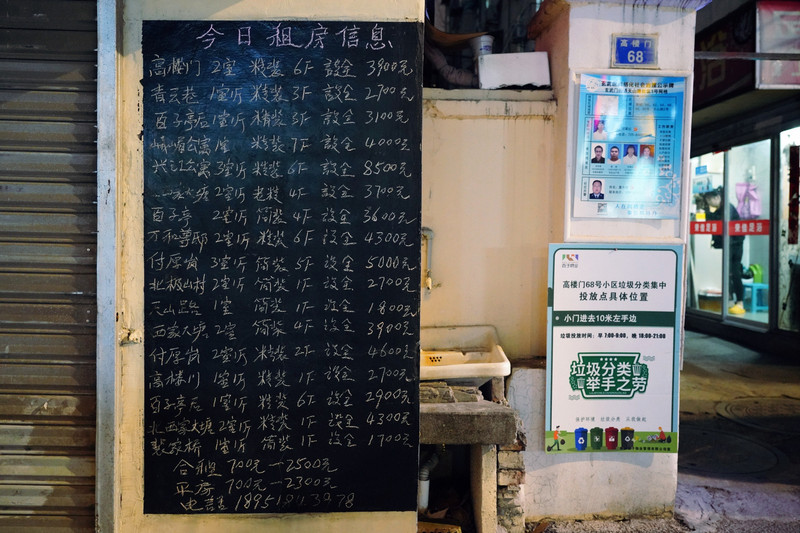 今日租房信息
高楼门 2室 精装 6F 設全 3900元
青云巷 1室厅 精装 3F 設全 2700元
百子亭后 1室厅 精装 3F 設全 3100元
公寓 精装 7F 設全 4000元
兴江公寓 3室厅 精装 6F 設全 8500元
2室厅 老装 4F 設全 3700元
百子亭 2室厅 简装 4F 設全 3600元
万和尊邸 2室厅 精装 6F 設全 4300元
付厚岗 3室厅 简装 5F 設全 5000元
北极山村 2室厅 简装 1F 設全 2700元
天山路 1室 简装 1F 設全 1800元
西家大塘 2室 简装 4F 設全 3900元
付厚岗 2室厅 精装 2F 設全 4600元
高楼门 1室厅 精装 1F 設全 2700元
百子亭后 1室厅 精装 6F 設全 2900元
北西家大塘 2室厅 精装 1F 設全 4300元
裴家桥 1室厅 简装 1F 設全 1700元
合租 700元—2500元
平房 700元—2300元
电话
高楼门
68
高楼门68号小区垃圾分类集中
投放点具体位置
小门进去10米左手边
垃圾投放时间：早 7:00-9:00，晚 18:00-21:00
垃圾分类
举手之劳